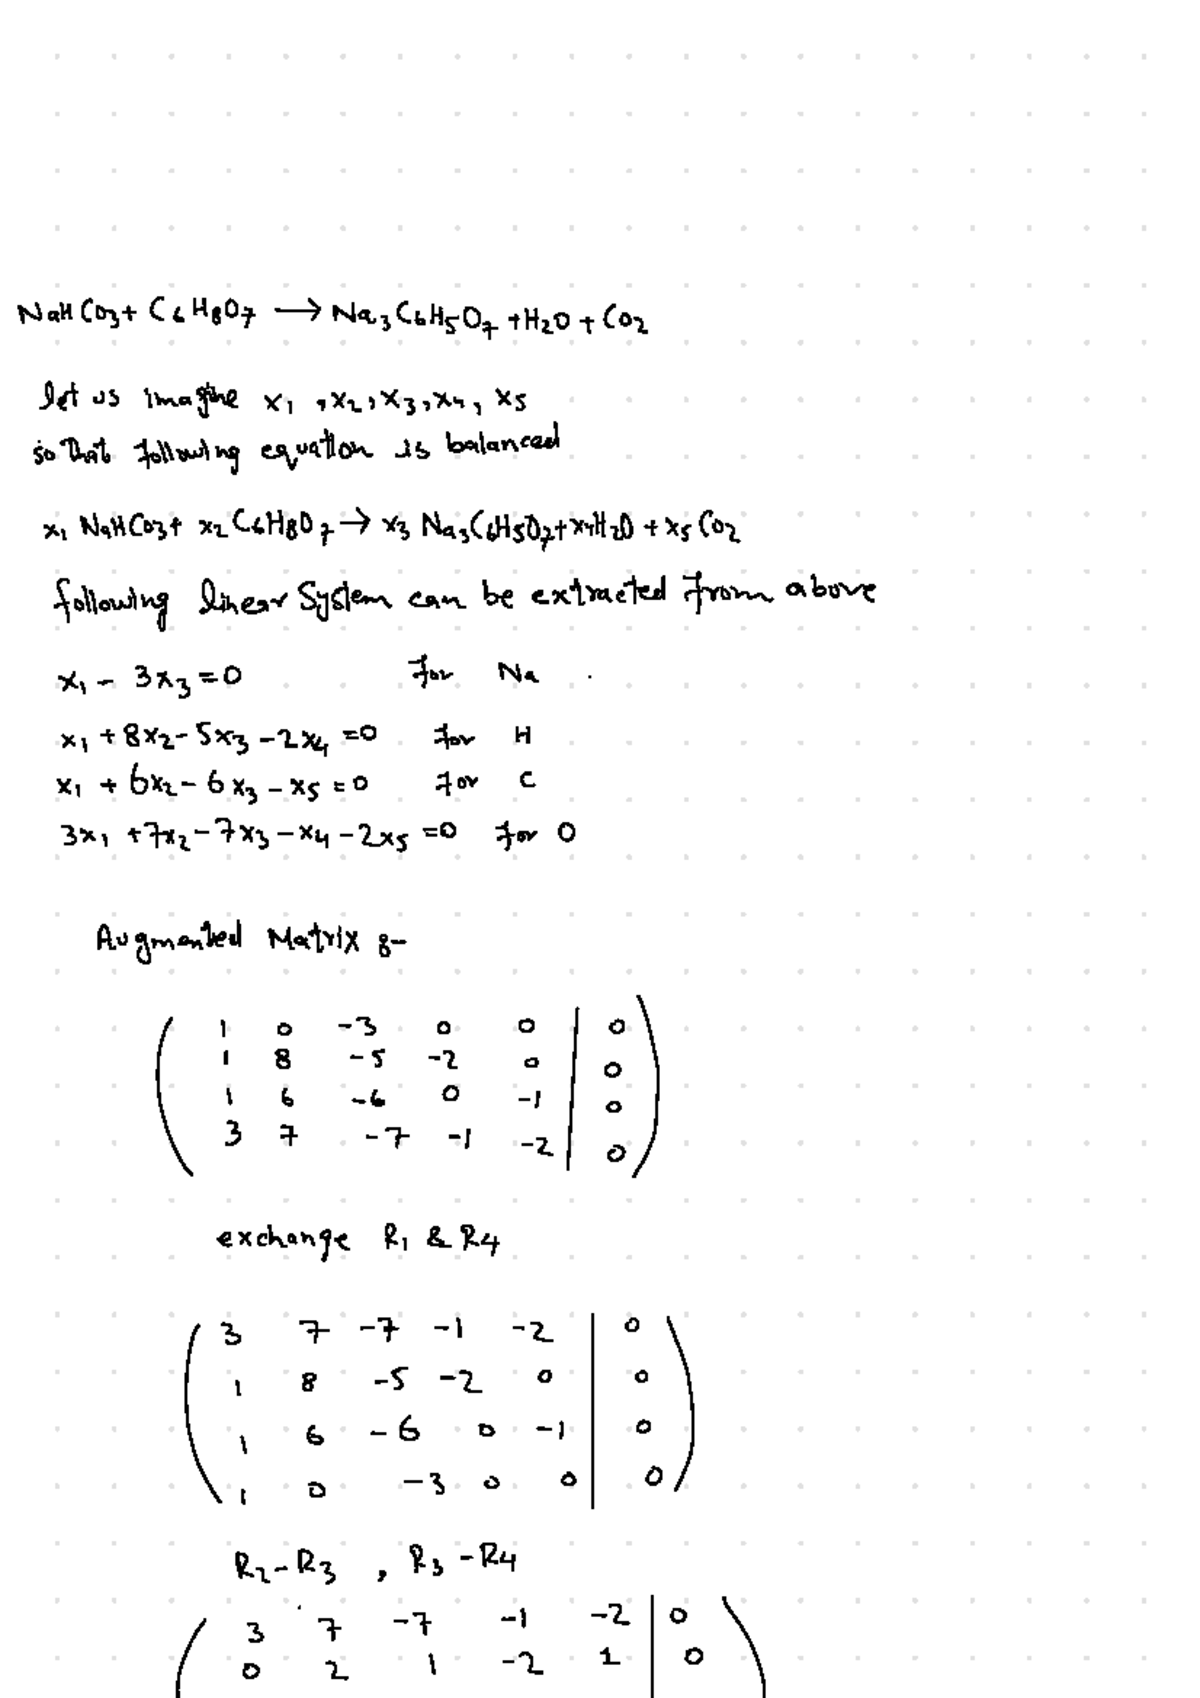 NaHCO3 + C6H8O7 → Na3C6H5O7 + H2O + CO2
let us imagine x1, x2, x3, x4, x5
so that following equation is balanced
x1 NaHCO3 + x2 C6H8O7 → x3 Na3C6H5O7 + x4H2O + x5 CO2
following linear System can be extracted from above
x1 - 3x3 = 0 for Na
x1 + 8x2 - 5x3 - 2x4 = 0 for H
x1 + 6x2 - 6x3 - x5 = 0 for C
3x1 + 7x2 - 7x3 - x4 - 2x5 = 0 for O
Augmented Matrix :-
1 0 -3 0 0 | 0
1 8 -5 -2 0 | 0
1 6 -6 0 -1 | 0
3 7 -7 -1 -2 | 0
exchange R1 & R4
3 7 -7 -1 -2 | 0
1 8 -5 -2 0 | 0
1 6 -6 0 -1 | 0
1 0 -3 0 0 | 0
R2 - R3 , R3 - R4
3 7 -7 -1 -2 | 0
0 2 1 -2 1 | 0